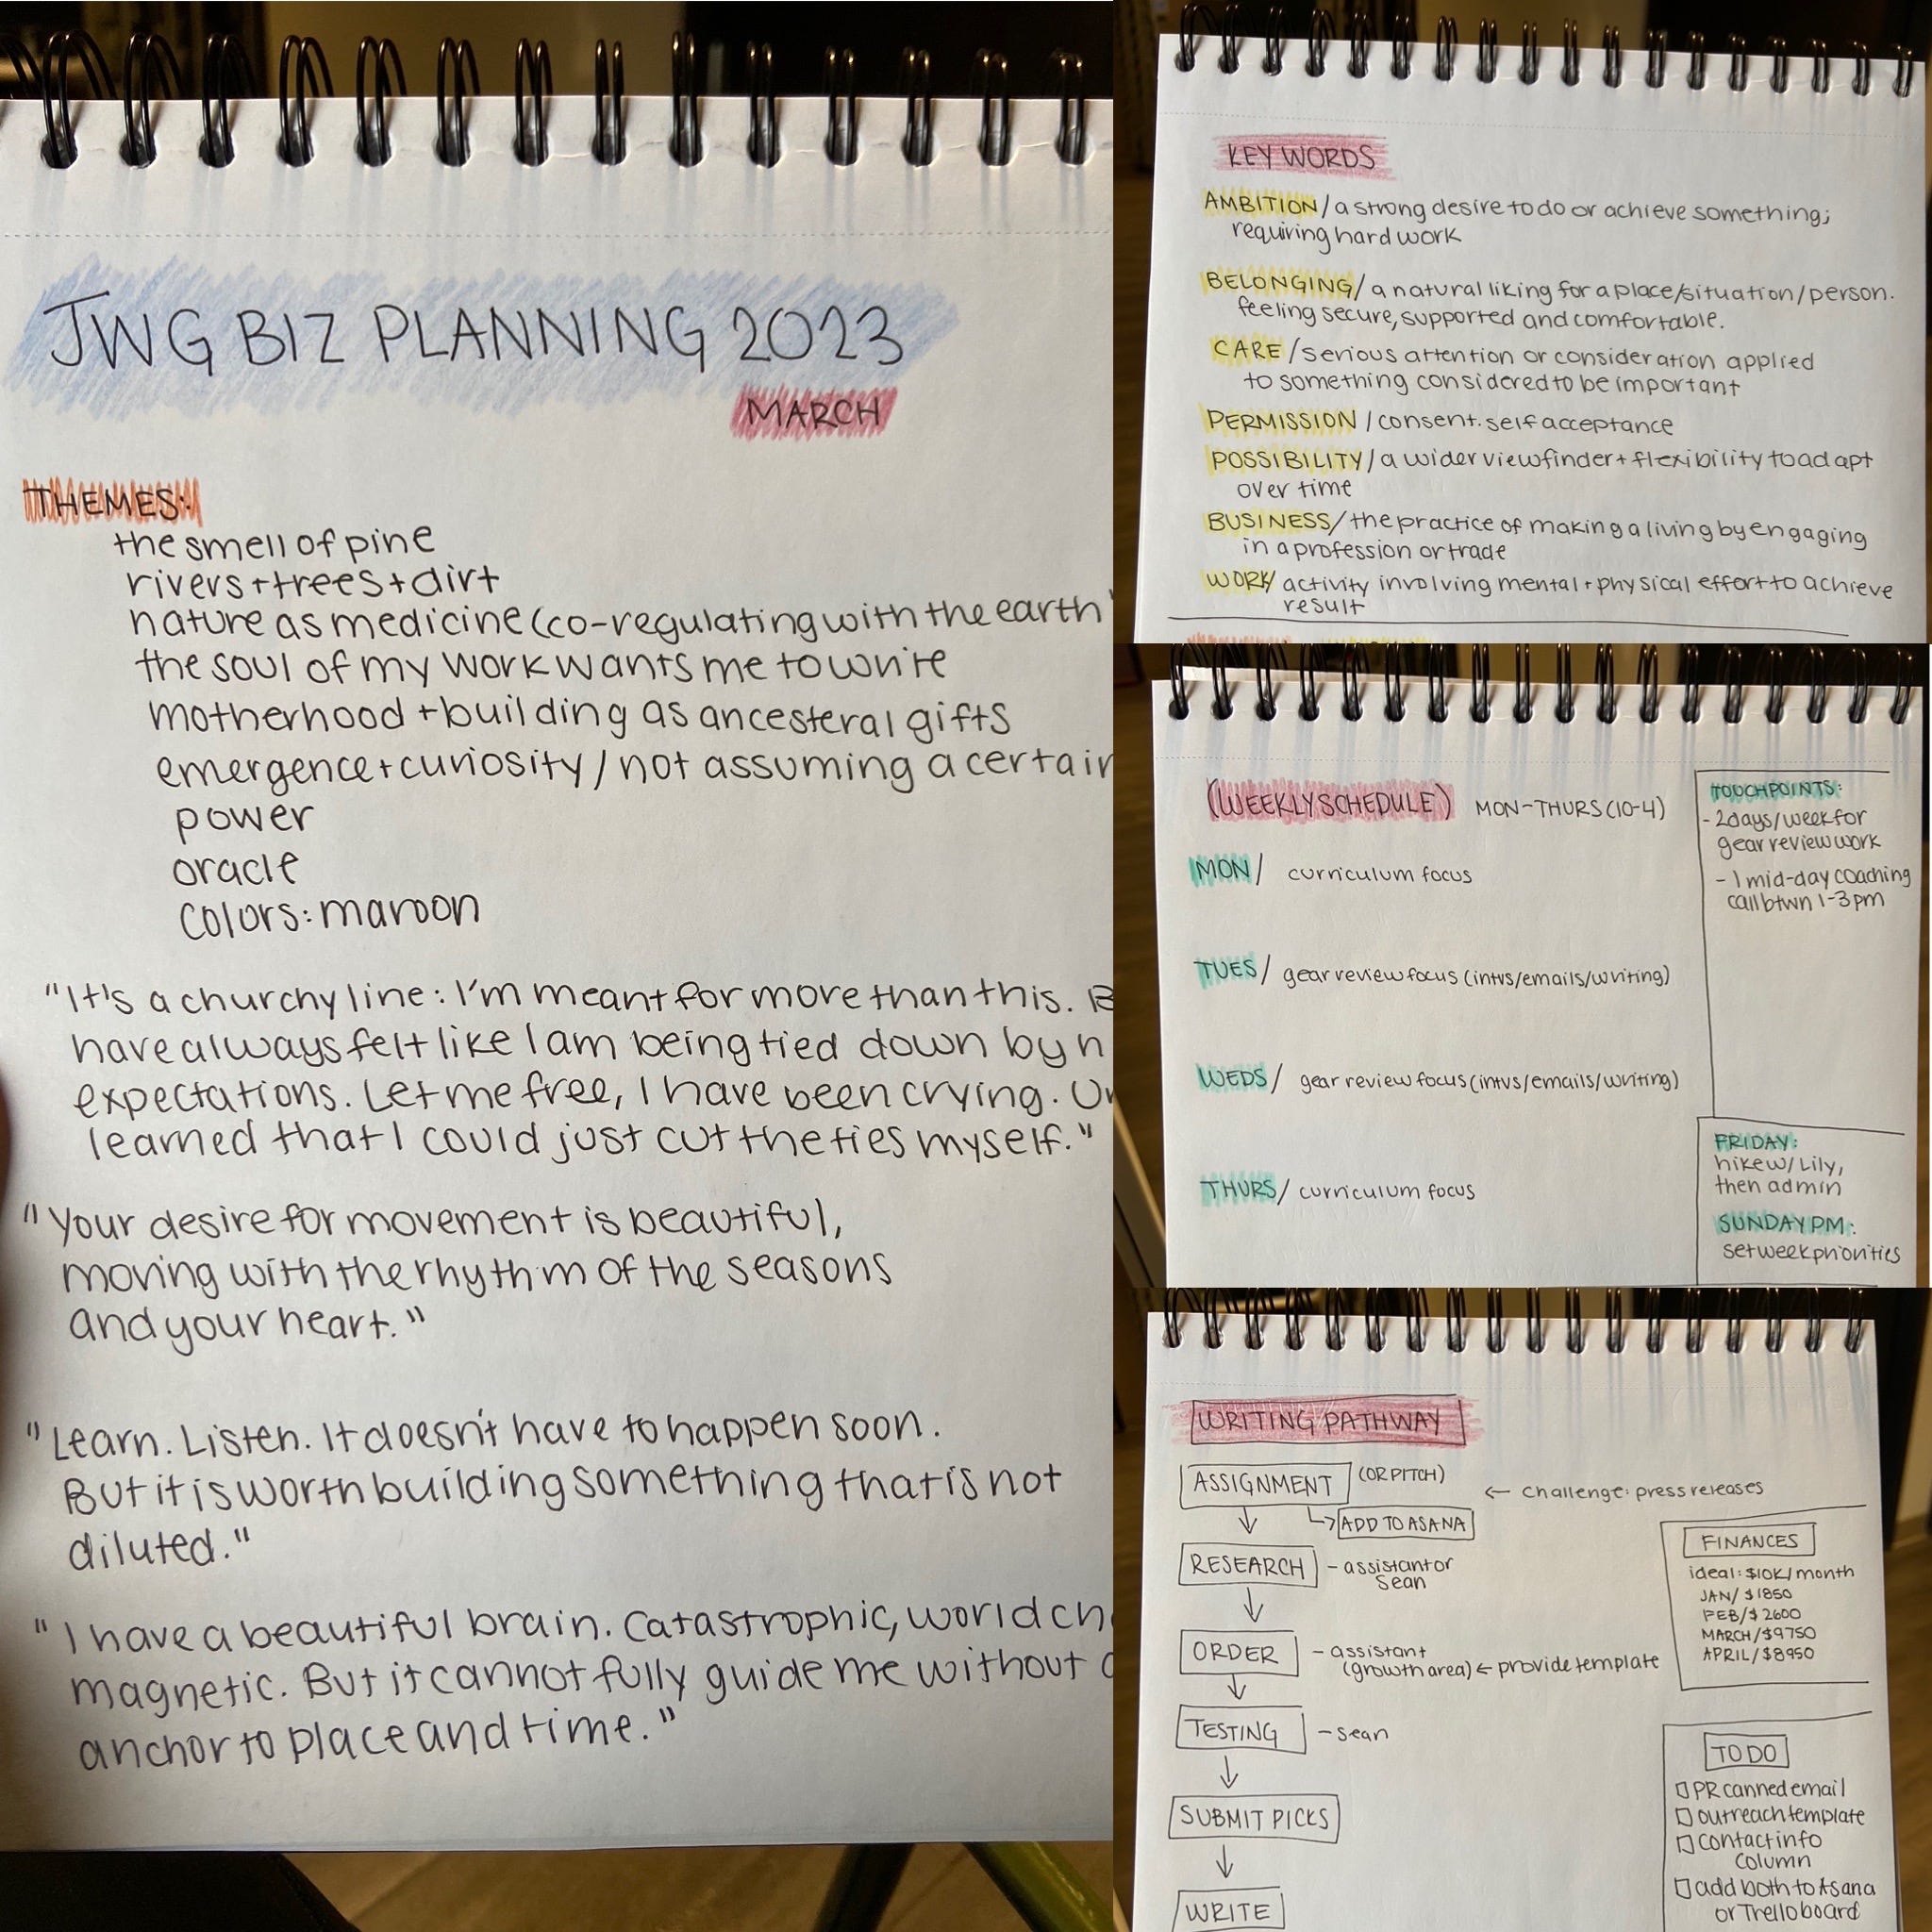 JWG BIZ PLANNING 2023
MARCH
THEMES:
the smell of pine
rivers + trees + dirt
nature as medicine (co-regulating with the earth
the soul of my work wants me to write
motherhood + building as ancesteral gifts
emergence + curiosity / not assuming a certain
power
oracle
colors: maroon
"It's a churchy line: I'm meant for more than this.
have always felt like I am being tied down by
expectations. Let me free, I have been crying.
learned that I could just cut the ties myself."
"Your desire for movement is beautiful,
moving with the rhythm of the seasons
and your heart."
"Learn. Listen. It doesn't have to happen soon.
But it is worth building something that is not
diluted."
"I have a beautiful brain. Catastrophic, world
magnetic. But it cannot fully guide me without
anchor to place and time."
KEY WORDS
AMBITION / a strong desire to do or achieve something;
requiring hard work
BELONGING / a natural liking for a place/situation/person.
feeling secure, supported and comfortable.
CARE / serious attention or consideration applied
to something considered to be important
PERMISSION / consent. self acceptance
POSSIBILITY / a wider viewfinder + flexibility to adapt
over time
BUSINESS / the practice of making a living by engaging
in a profession or trade
WORK / activity involving mental + physical effort to achieve
result
(WEEKLY SCHEDULE) MON-THURS (10-4)
MON / curriculum focus
TUES / gear review focus (intvs/emails/writing)
WEDS / gear review focus (intvs/emails/writing)
THURS / curriculum focus
TOUCHPOINTS:
- 2 days/week for
gear review work
- 1 mid-day coaching
call btwn 1-3 pm
FRIDAY:
hike w/ Lily,
then admin
SUNDAY PM:
set week priorities
WRITING PATHWAY
ASSIGNMENT (OR PITCH)
← challenge: press releases
ADD TO ASANA
RESEARCH - assistant or
Sean
ORDER - assistant
(growth area) ← provide template
TESTING - sean
SUBMIT PICKS
WRITE
FINANCES
ideal: $10K/month
JAN/ $1850
FEB/ $2600
MARCH/ $9750
APRIL/ $8950
TO DO
PR canned email
outreach template
contact info
column
add both to Asana
or Trello board